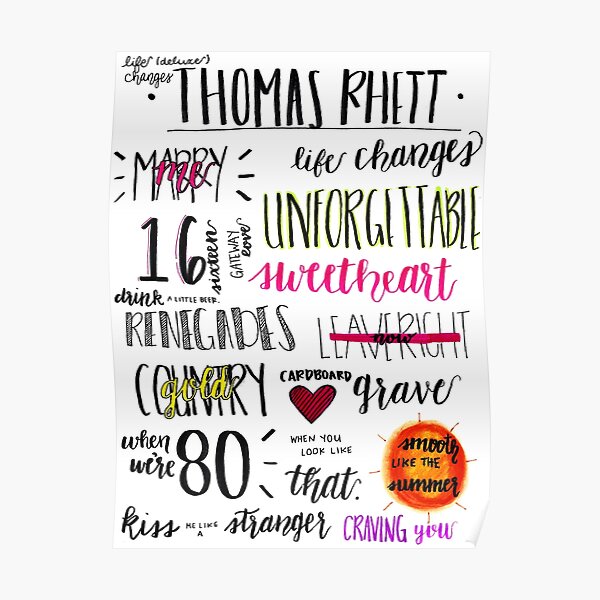 life {deluxe}
changes
• THOMAS RHETT •
MARRY me
life changes
16 sixteen
GATEWAY love
UNFORGETTABLE
sweetheart
drink A LITTLE BEER.
RENEGADES
LEAVE RIGHT now
COUNTRY gold
CARDBOARD
grave
when
we're 80
WHEN YOU
LOOK LIKE
that.
smooth
LIKE THE
summer
kiss ME LIKE A stranger
CRAVING you